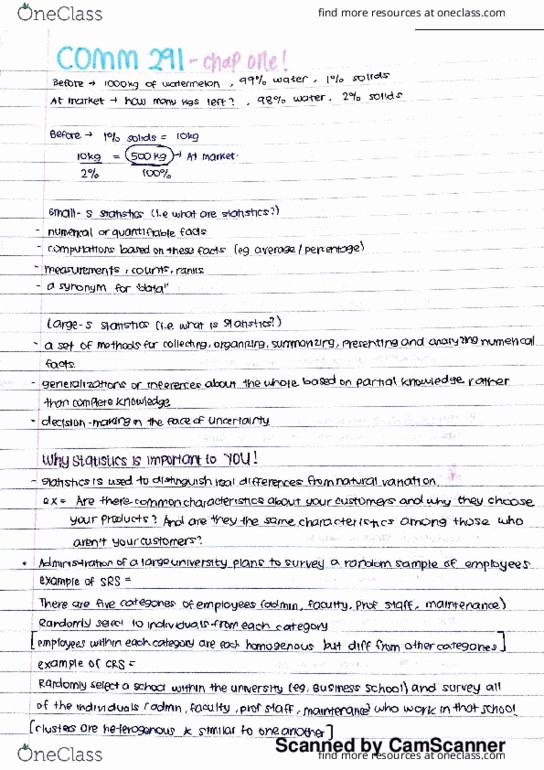 OneClass
find more resources at oneclass.com
COMM 291 - chap one!
Before → 1000kg of watermelon , 99% water , 1% solids
At market → how many kgs left? , 98% water , 2% solids
Before → 1% solids = 10kg
10kg = 500kg → At market.
2% 100%
Small-s statistics (i.e what are statistics?)
- numerical or quantifiable facts
- computations based on these facts (eg average/percentage)
- measurements, counts, ranks
- a synonym for "data"
Large-s statistics (i.e. what is statistics?)
- a set of methods for collecting, organizing, summarizing, presenting and analyzing numerical
facts.
- generalizations or inferences about the whole based on partial knowledge rather
than complete knowledge
- decision-making in the face of uncertainty
Why Statistics is important to YOU!
- statistics is used to distinguish real differences from natural variation.
ex = Are there common characteristics about your customers and why they choose
your products? And are they the same characteristics among those who
aren't your customers?
• Administration of a large university plans to survey a random sample of employees
example of SRS =
There are five categories of employees (admin, faculty, prof staff, maintenance)
Randomly select 10 individuals from each category
[employees within each category are each homogenous but diff from other categories]
example of CRS =
Randomly select a school within the university (eg. Business School) and survey all
of the individuals (admn, faculty, prof staff, maintenance) who work in that school.
[clusters are heterogenous & similar to one another]
Scanned by CamScanner
OneClass
find more resources at oneclass.com